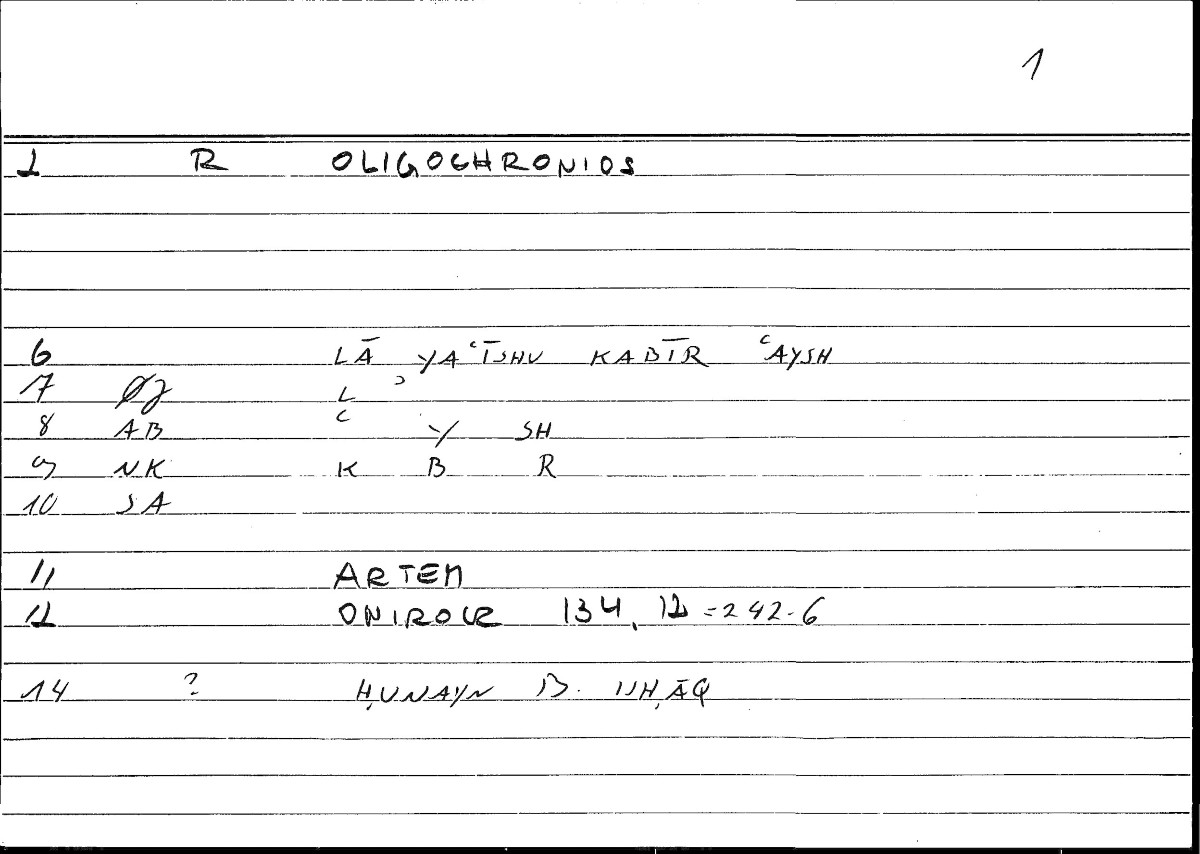 1
1 R OLIGOCHRONIOS
6 LĀ YAʿĪSHU KABĪR ʿAYSH
7 ØJ L ʾ
8 AB ʿ Y SH
9 NK K B R
10 SA
11 ARTEM
12 ONIROCR 134, 12 = 242-6
14 ? ḤUNAYN B. ISḤĀQ